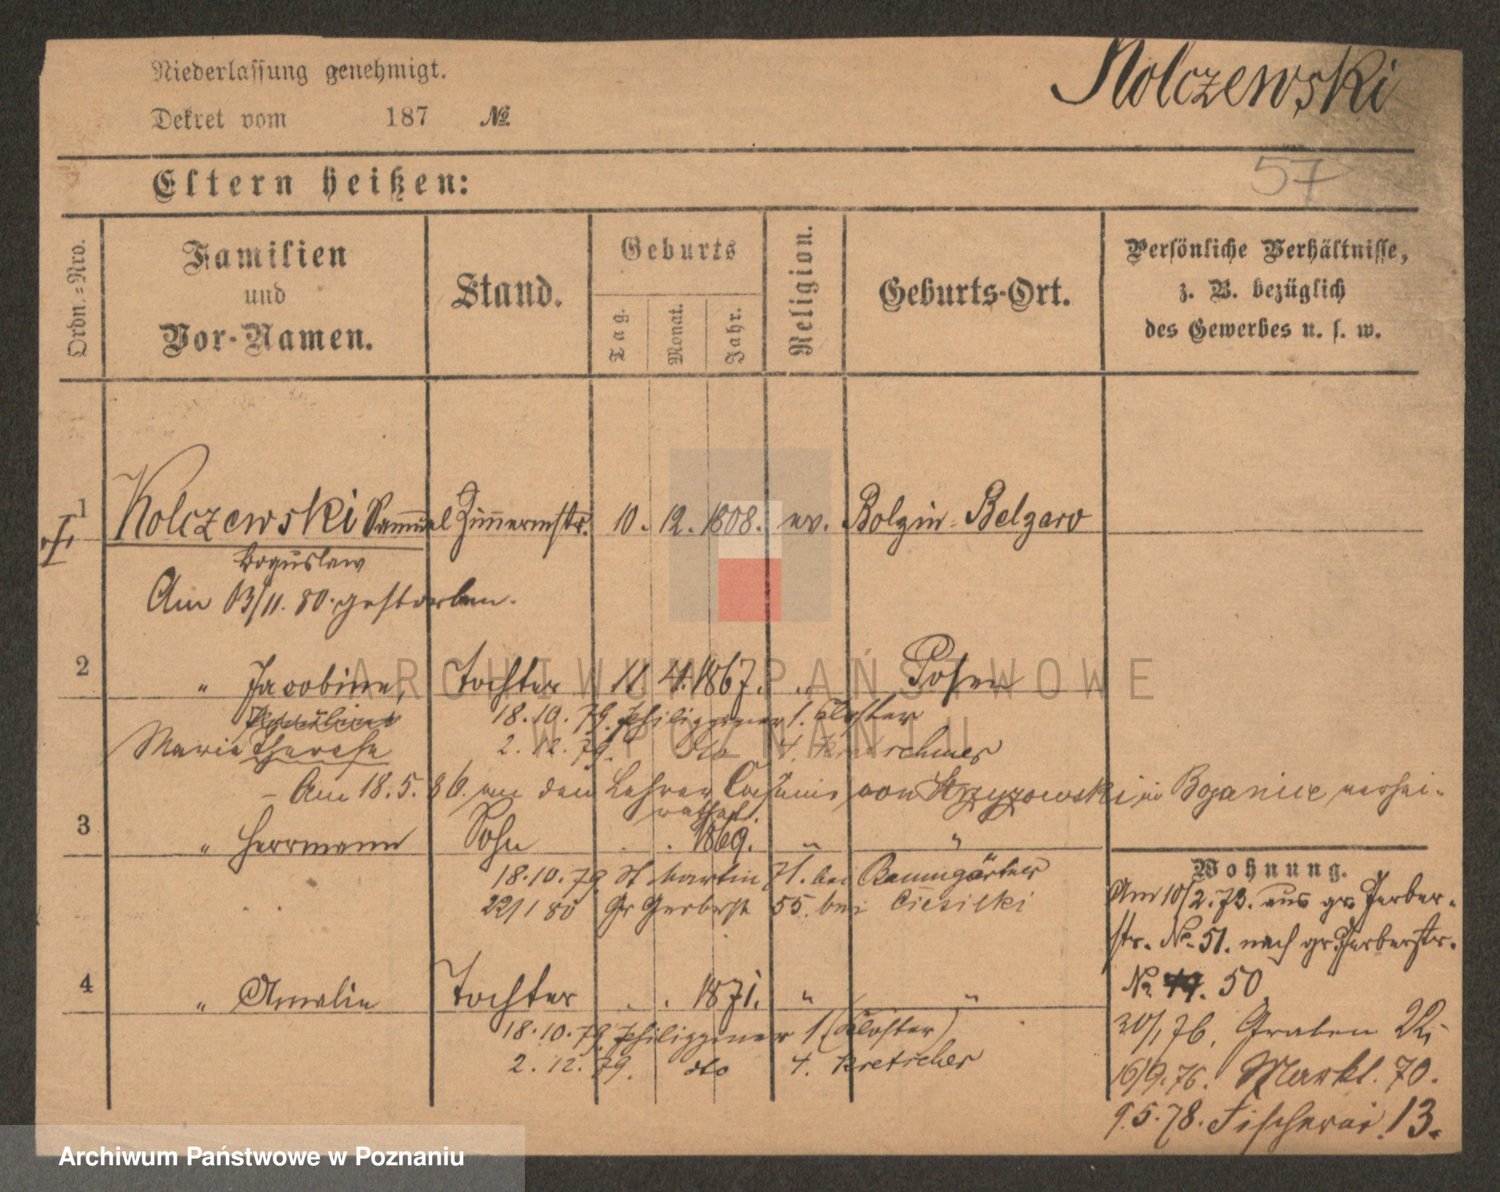 Niederlassung genehmigt.
Kolczewski
Dekret vom 187 №
57
Eltern heißen:
Ordn.-Nro.
Familien
und
Vor-Namen.
Stand.
Geburts
Tag.
Monat.
Jahr.
Religion.
Geburts-Ort.
Persönliche Verhältnisse,
z. B. bezüglich
des Gewerbes u. s. w.
1 Kolczewski Samuel Zimmermstr. 10. 12. 1808. ev. Bolgin-Belgard
Boguslaw
Am 13/11. 80. gestorben.
2 " Jacobine, Tochter 11 4. 1867. " Posen
18.10.79. Philippiner 1. Kloster
Marie Therese 2.12.79. do 4. Kretschmer
- Am 18.5.86. an den Lehrer Casimir von Krzyzowski in Bojanice verhei-
rathet.
3 " Herrmann Sohn . . 1869. " "
18.10.79 St Martin 71. bei Baumgärtner
22/1 80 Gr Gerberst 55. bei Ciesilski
4 " Amalie Tochter . . 1871. " "
18.10.79. Philippiner 1. (Kloster)
2.12.79. do 4. Kretscher
Wohnung.
Am 10/2.73. aus gr. Gerber-
str. No. 51. nach gr. Gerberstr.
No. 49. 50
20/1 76. Graben 22;
16/9.76. Markt. 70.
9.5.78. Fischerei 13.
ARCHIWUM PAŃSTWOWE
W POZNANIU
Archiwum Państwowe w Poznaniu